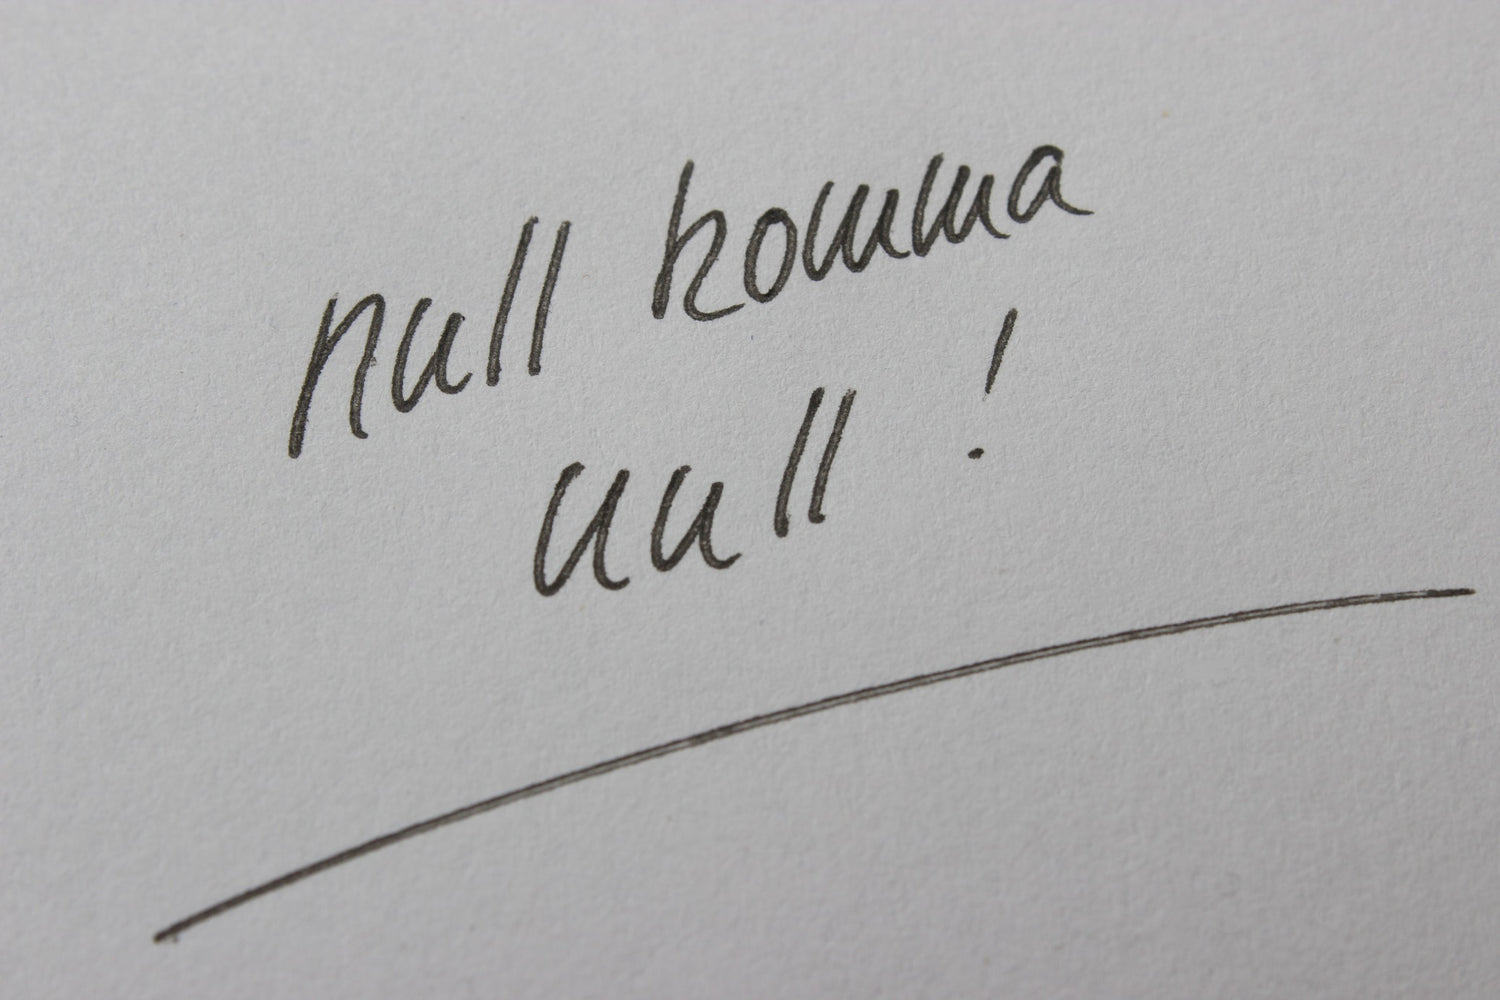 null komma
null!